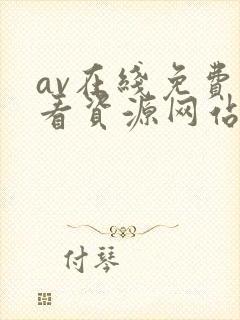 av在线免费
看资源网站
付琴